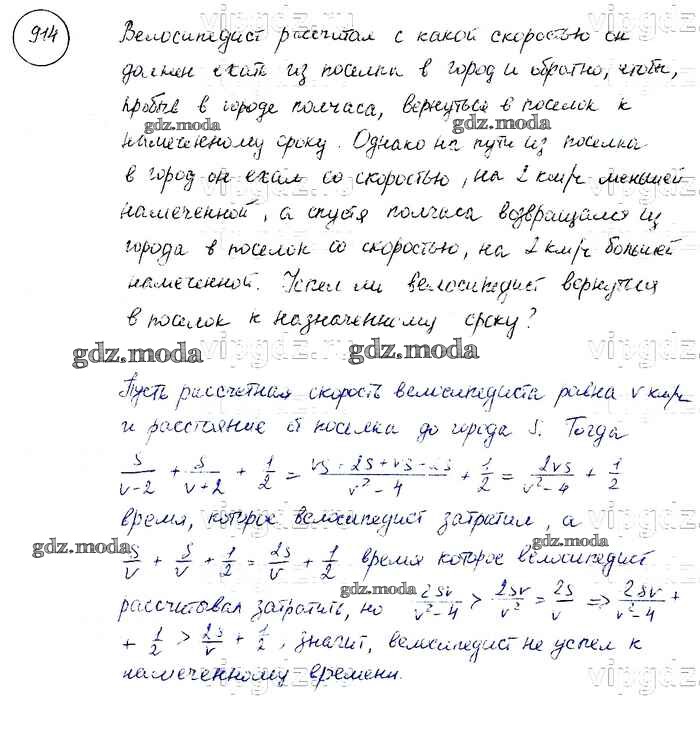 914
Велосипедист рассчитал с какой скоростью он
должен ехать из поселка в город и обратно, чтобы,
пробыв в городе полчаса, вернуться в поселок к
намеченному сроку. Однако на пути из поселка
в город он ехал со скоростью, на 2 км/ч меньшей
намеченной, а спустя полчаса возвращался из
города в поселок со скоростью, на 2 км/ч большей
намеченной. Успел ли велосипедист вернуться
в поселок к назначенному сроку?
Пусть рассчетная скорость велосипедиста равна v км/ч
и расстояние от поселка до города S. Тогда
S/(v-2) + S/(v+2) + 1/2 = (vS - 2S + vS + 2S)/(v²-4) + 1/2 = 2vS/(v²-4) + 1/2
время, которое велосипедист затратил, а
S/v + S/v + 1/2 = 2S/v + 1/2 время которое велосипедист
рассчитывал затратить, но 2Sv/(v²-4) > 2Sv/v² = 2S/v ⇒ 2Sv/(v²-4) +
+ 1/2 > 2S/v + 1/2, значит, велосипедист не успел к
намеченному времени.
gdz.moda
gdz.moda
gdz.moda
gdz.moda
gdz.moda
gdz.moda
vipgdz.ru